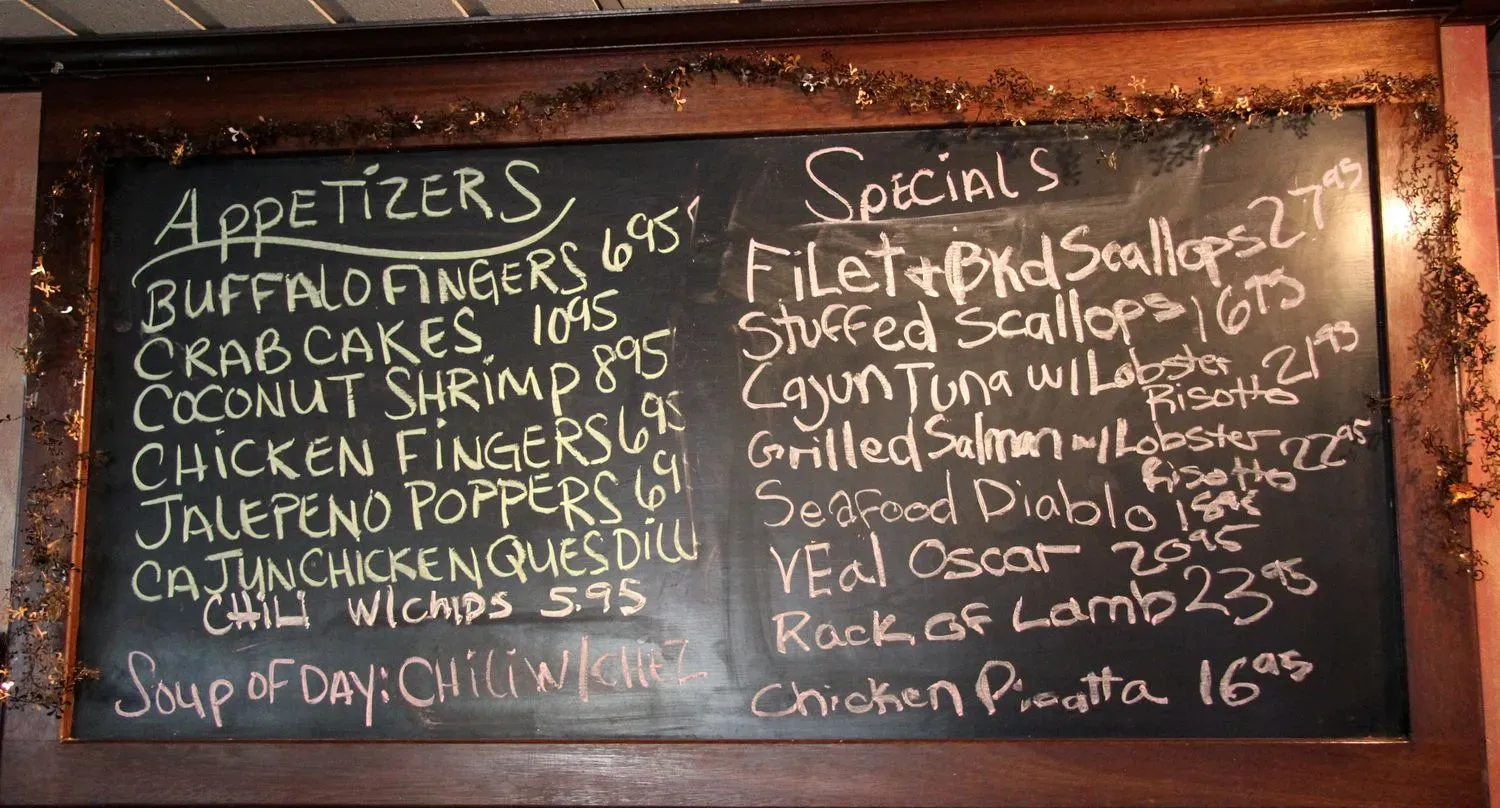 APPETIZERS
BUFFALO FINGERS 6 95
CRAB CAKES 10 95
COCONUT SHRIMP 8 95
CHICKEN FINGERS 6 95
JALEPENO POPPERS 6 9
CAJUN CHICKEN QUESDILL
CHILI W/chips 5.95
Soup OF DAY: CHiLi W/CHEZ
SPECiAlS
FiLet + BKd Scallops 27 95
Stuffed Scallops 16 95
Cajun Tuna w/ Lobster Risotto 21 95
Grilled Salmon w/ Lobster Risotto 22 95
Seafood Diablo 18 95
VEal Oscar 20 95
Rack of Lamb 23 95
Chicken Picatta 16 95